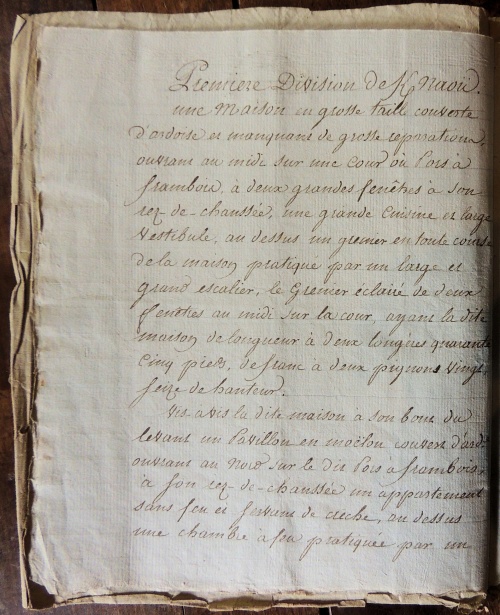 Premiere Division de K/naou.
une Maison en grosse taille couverte
d'ardoise et manquant de grosse reparation,
ouvrant au midi sur une cour ou Pors à
frambois, à deux grandes fenêtres à son
rez-de-chaussée, une grande Cuisine et large
Vestibule, au dessus un grenier en toute
de la maison pratiqué par un large et
grand escalier, le Grenier éclairé de deux
fenêtres au midi sur la cour, ayant la dite
maison de longueur à deux longères quarante
cinq pieds, de franc à deux pignons vingt
seize de hauteur.
Vis a vis la dite maison à son bout du
levant un Pavillon en moëlon couvert
ouvrant au Nord sur le dit Pors a frambois,
à son rez-de-chaussée un appartement
sans feu et servant de creche, au dessus
une chambre à feu pratiquée par un